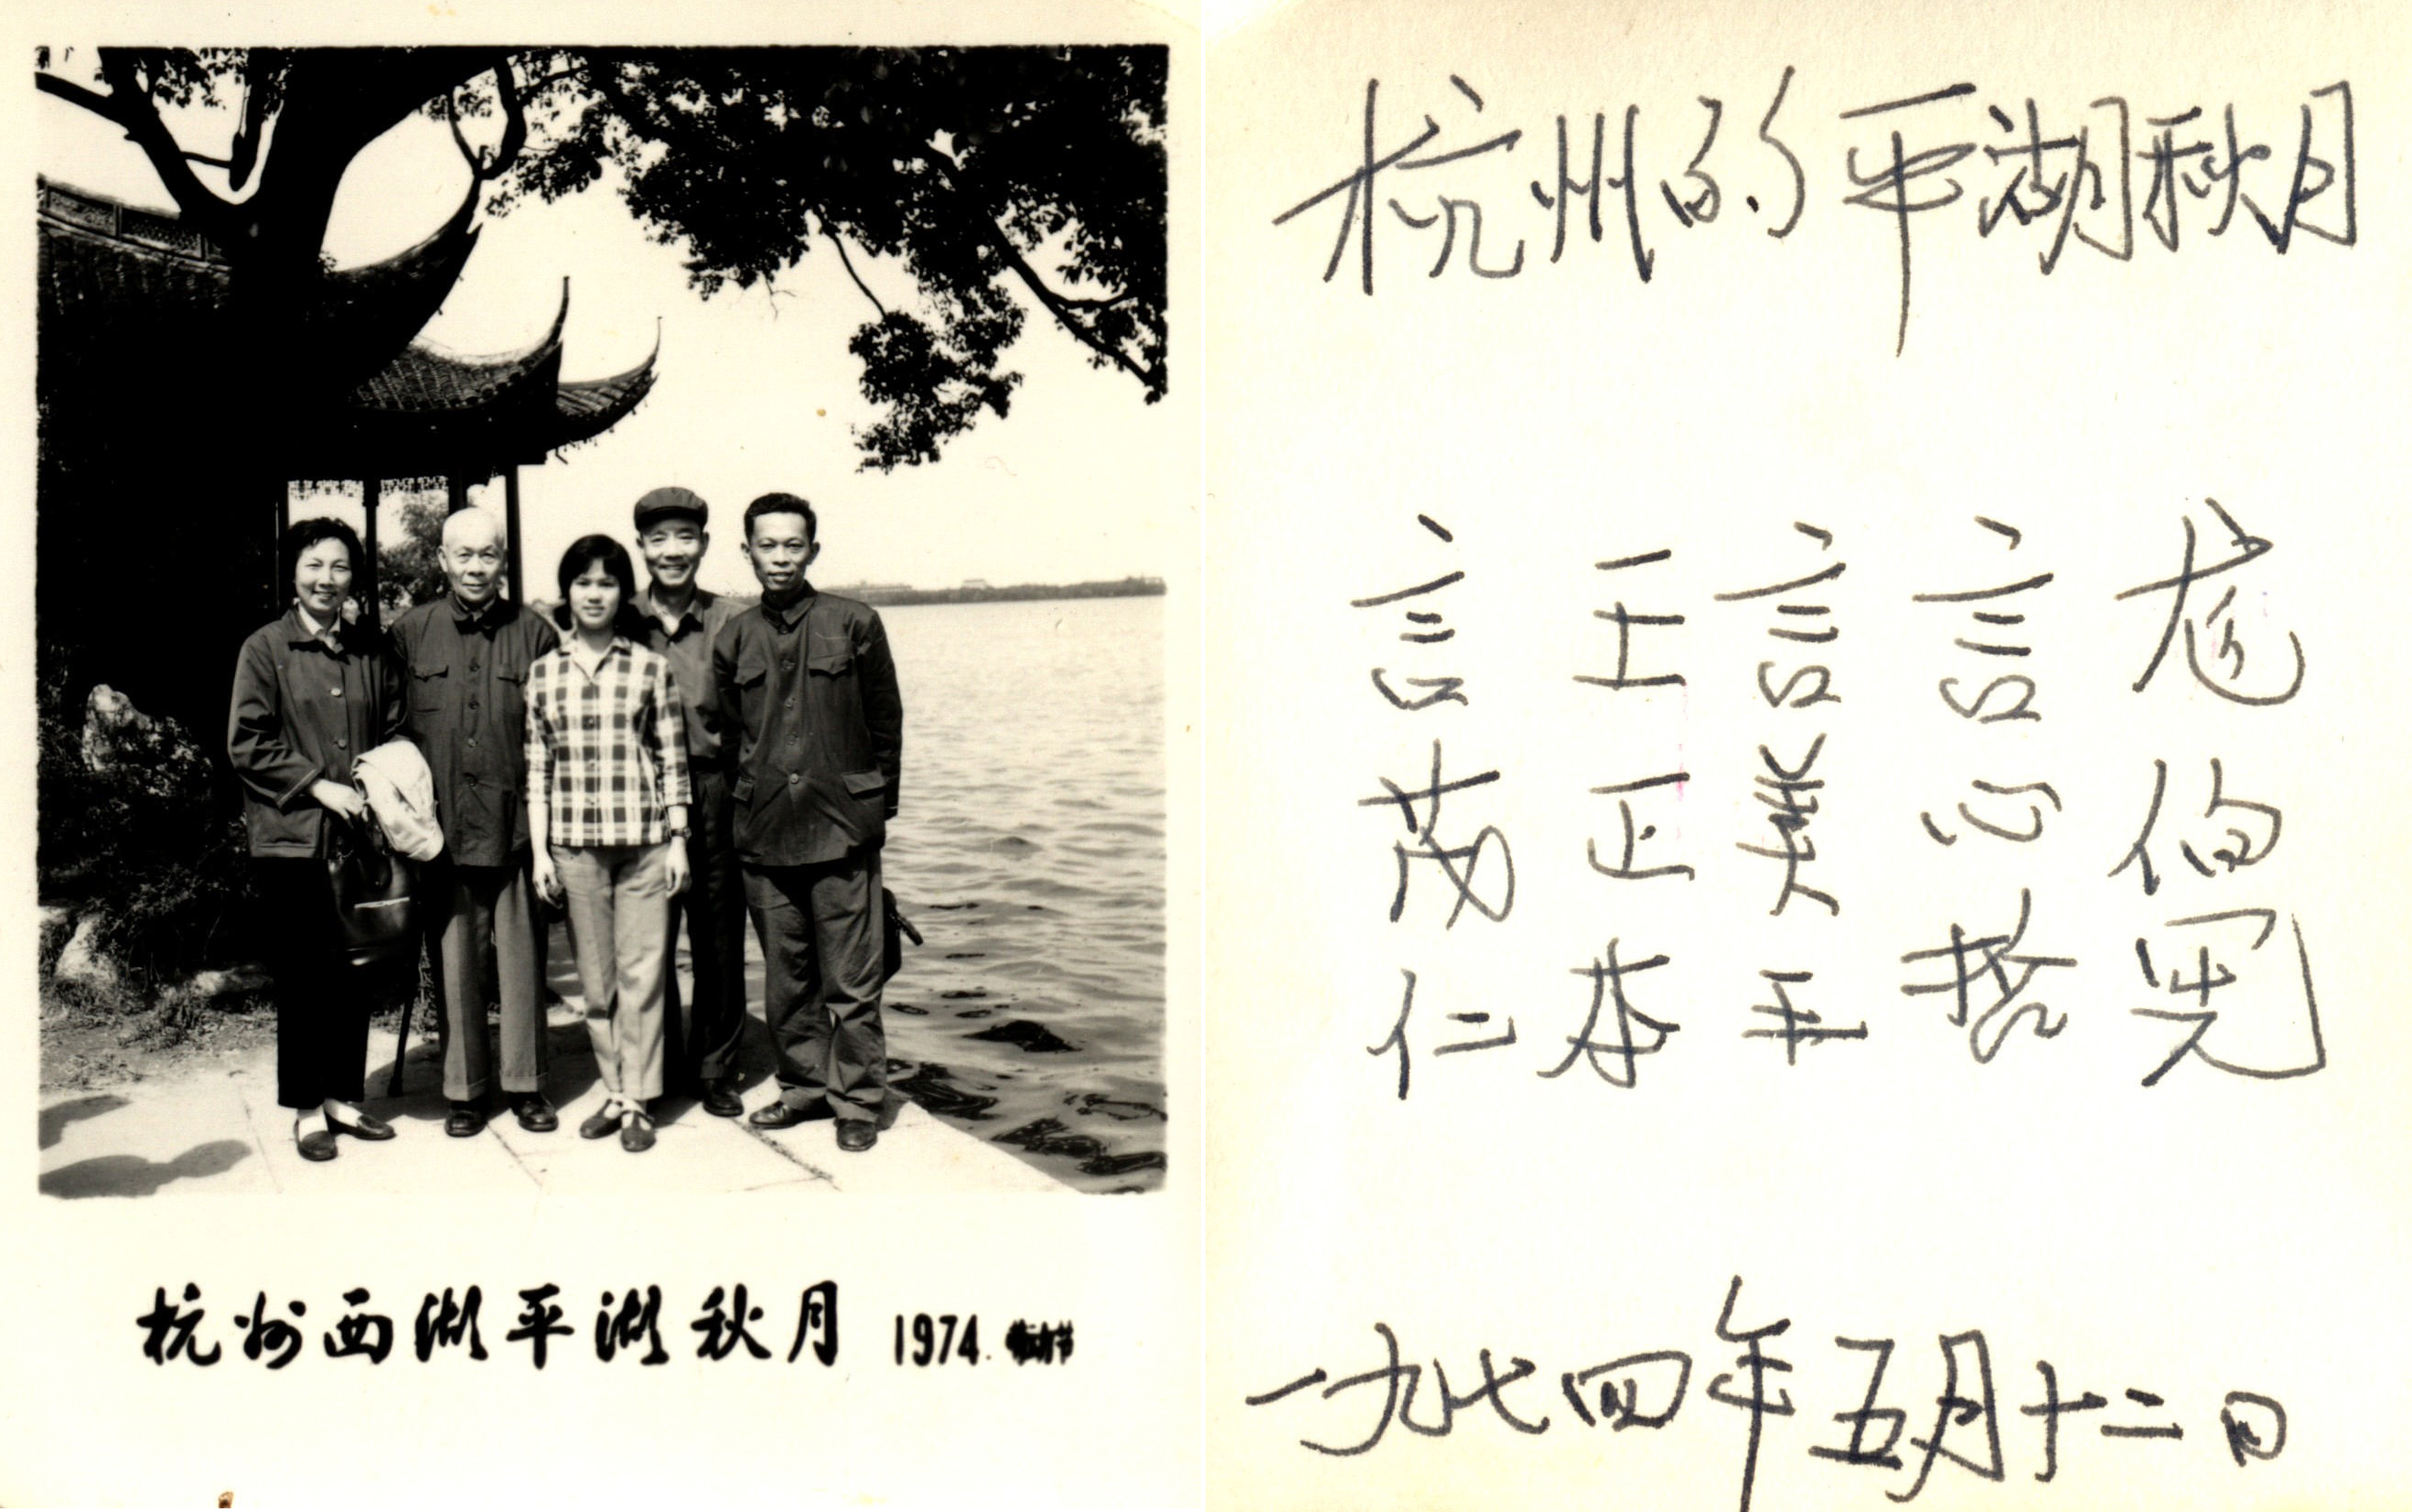 杭州西湖平湖秋月 1974.
杭州的平湖秋月
伯
言心哲
言
王正
言茂仁
一九七四年五月十二日